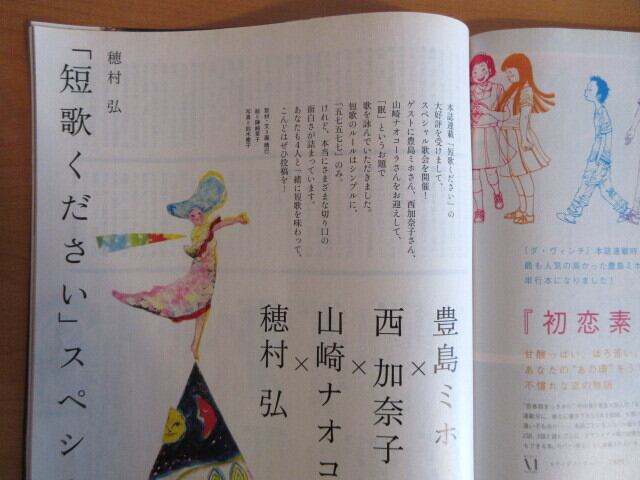 穂村 弘
「短歌ください」スペシ
本誌連載「短歌ください」の
大好評を受けまして、
スペシャル歌会を開催！
ゲストに豊島ミホさん、西加奈子さん、
山崎ナオコーラさんをお迎えして、
「眠」というお題で
歌を詠んでいただきました。
短歌のルールはシンプルに、
「五七五七七」のみ。
けれど、本当にさまざまな切り口の
面白さが詰まっています。
あなたも4人と一緒に短歌を味わって、
こんどはぜひ投稿を！
豊島ミホ
×
西 加奈子
×
山崎ナオコ
×
穂村 弘
『ダ・ヴィンチ』本誌連載時
最も人気の高かった豊島ミホ
単行本になりました！
『初恋素
甘酸っぱい、ほろ苦い
あなたの“あの頃”をう
不慣れな恋の物語